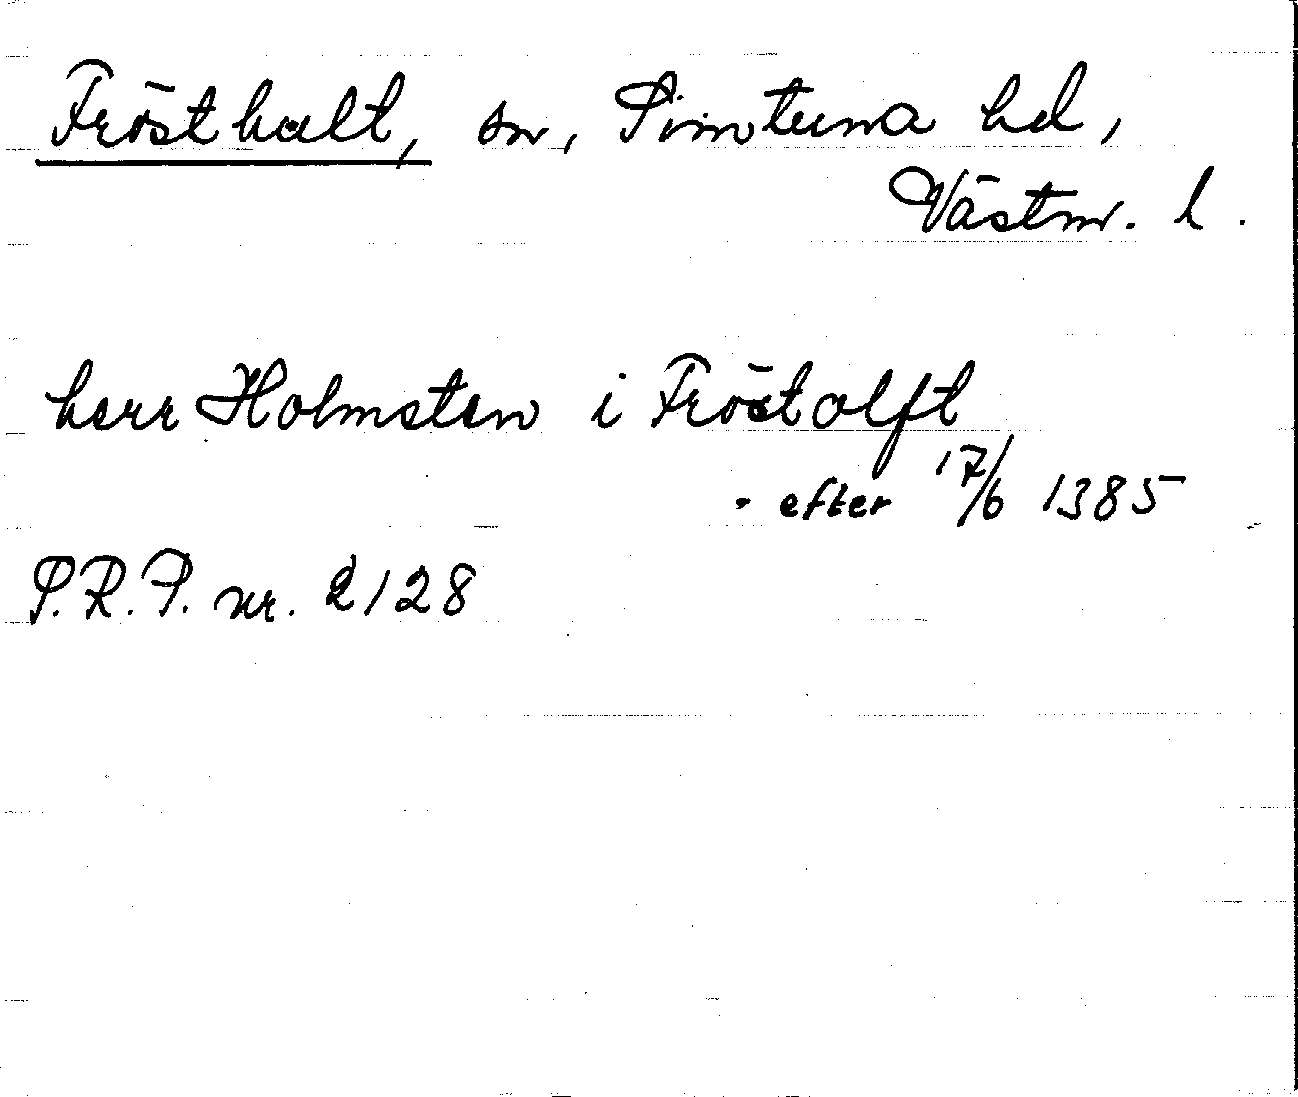 Frösthult, sn, Simtuna hd,
Västm. l.
herr Holmsten i Fröstolft
- efter 17/6 1385
S.R.P. nr. 2128